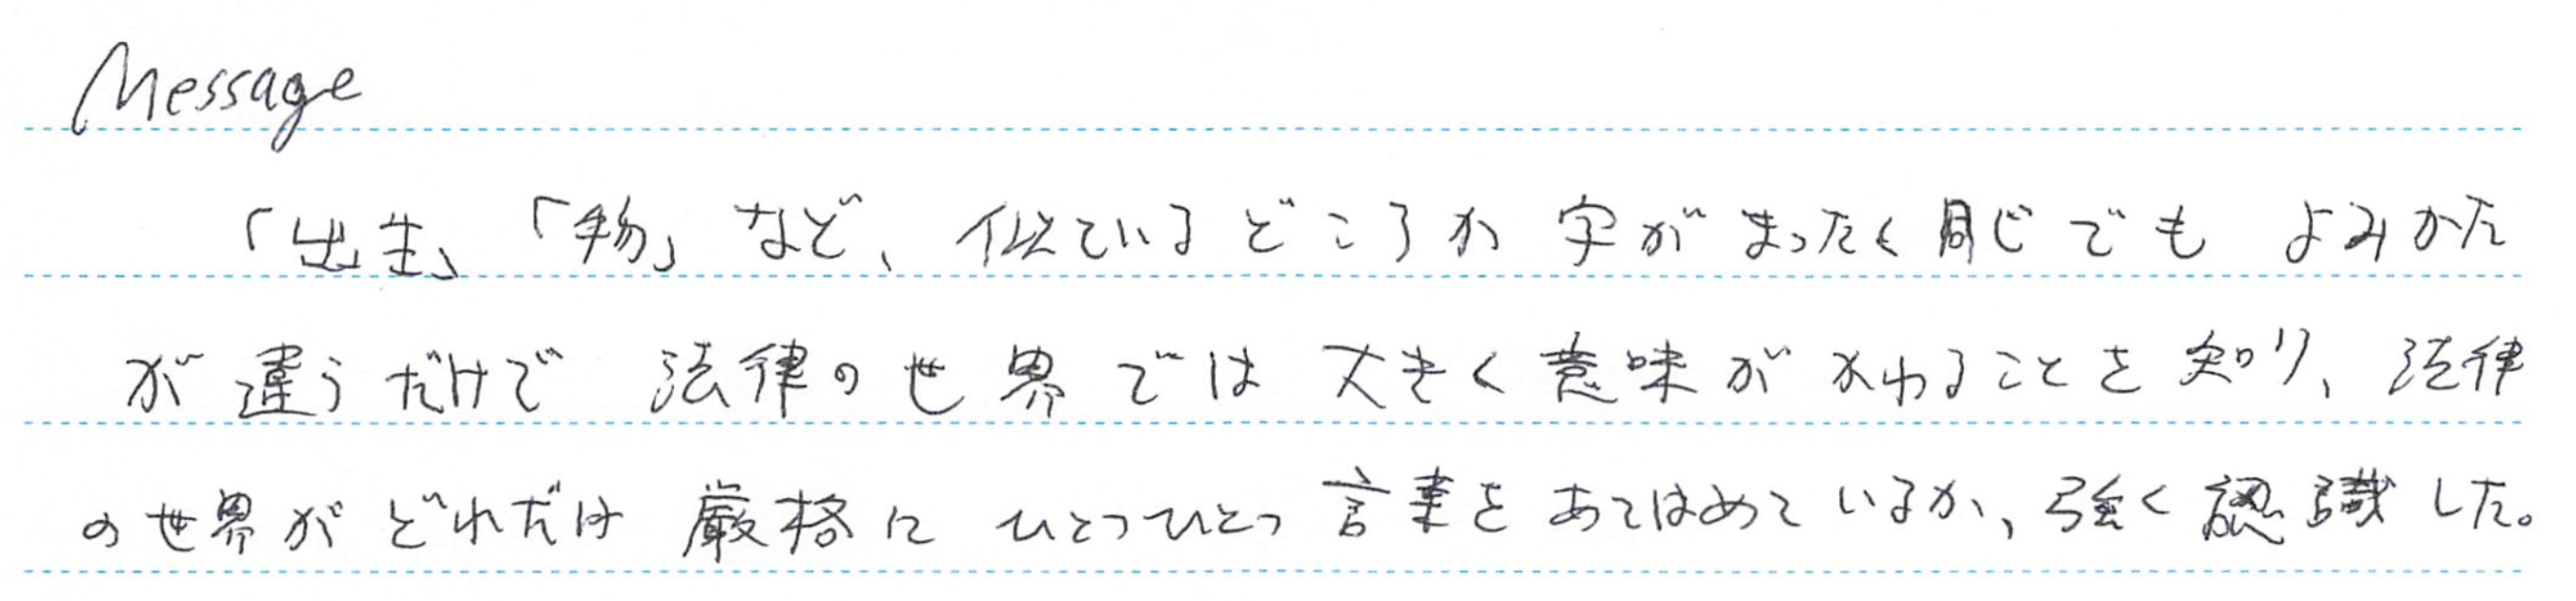 Message
「出生」「物」など、似ているどころか字がまったく同じでもよみかた
が違うだけで法律の世界では大きく意味がかわることを知り、法律
の世界がどれだけ厳格にひとつひとつ言葉をあてはめているか、強く認識した。